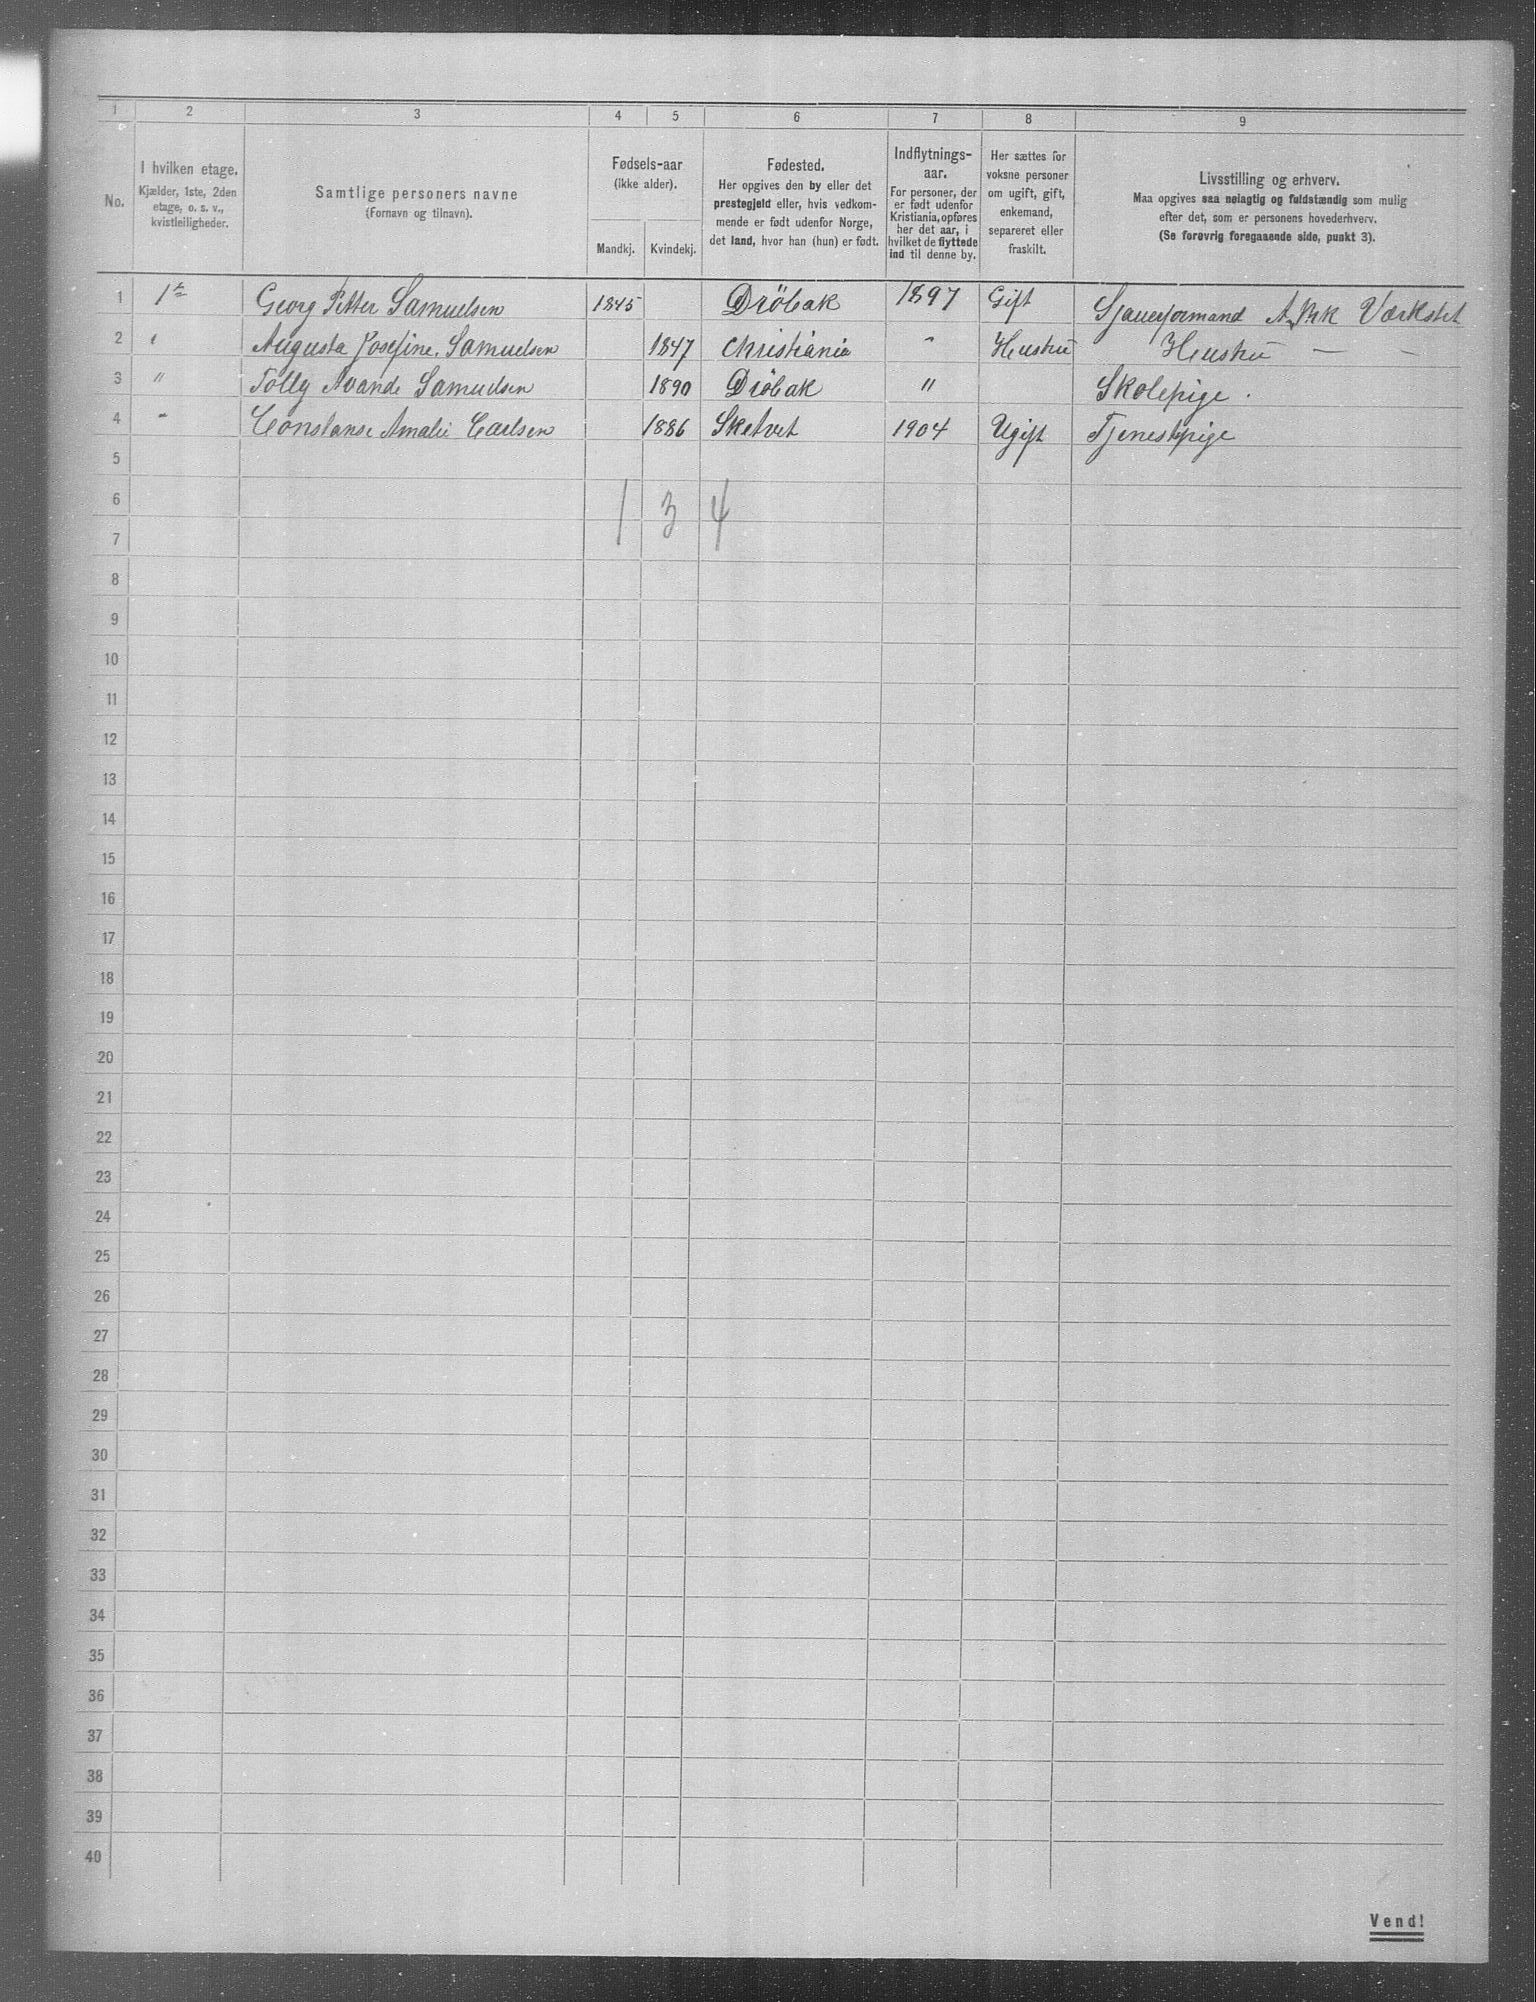 1 2 3 4 5 6 7 8 9
No.
I hvilken etage.
Kjælder, 1ste, 2den
etage, o. s. v.,
kvistleiligheder.
Samtlige personers navne
(Fornavn og tilnavn).
Fødsels-aar
(ikke alder).
Mandkj. Kvindekj.
Fødested.
Her opgives den by eller det
prestegjeld eller, hvis vedkom-
mende er født udenfor Norge,
det land, hvor han (hun) er født.
Indflytnings-
aar.
For personer, der
er født udenfor
Kristiania, opføres
her det aar, i
hvilket de flyttede
ind til denne by.
Her sættes for
voksne personer
om ugift, gift,
enkemand,
separeret eller
fraskilt.
Livsstilling og erhverv.
Maa opgives saa nøiagtig og fuldstændig som mulig
efter det, som er personens hovederhverv.
(Se forøvrig foregaaende side, punkt 3).
1 1ste Georg Petter Samuelsen 1845 Dröbak 1897 Gift Sjaueformand Værkstet
2 " Augusta Josefine Samuelsen 1847 Christiania " Hustru Hustru — —
3 " Samuelsen 1890 Dröbak " Skolepige.
4 " Constanse Amalie Carlsen 1886 1904 Ugift Tjenestpige
5
6
1 3 4
7
8
9
10
11
12
13
14
15
16
17
18
19
20
21
22
23
24
25
26
27
28
29
30
31
32
33
34
35
36
37
38
39
40
Vend!